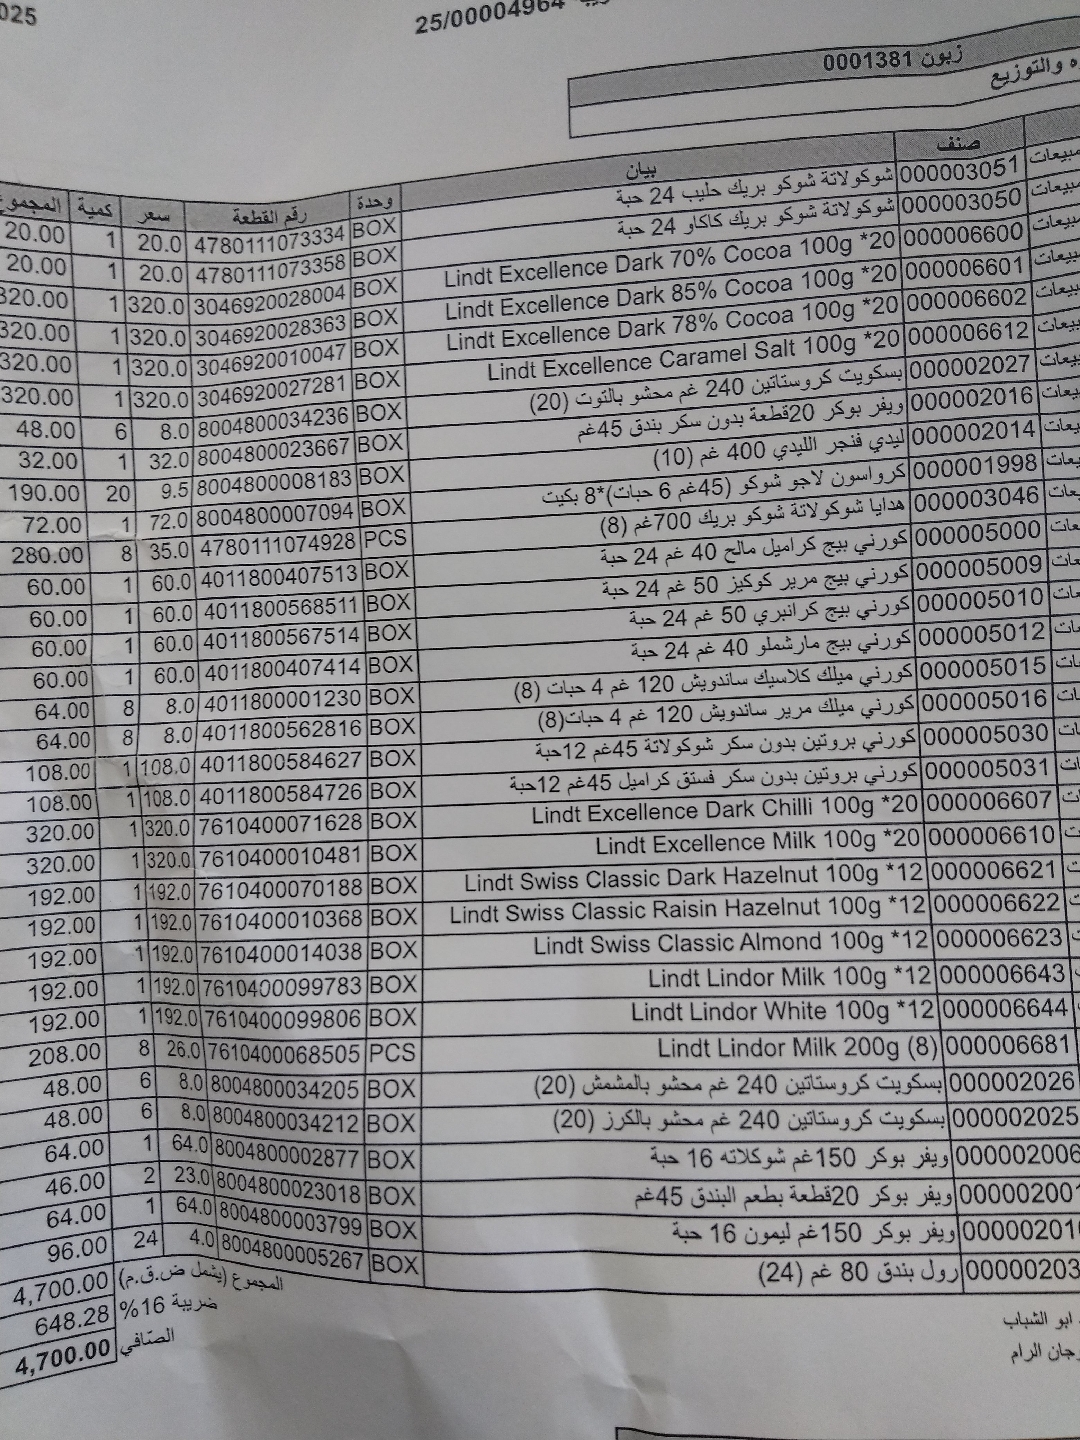 025
25/00004964
زبون 0001381
ه والتوزيع
صنف بيان وحدة رقم القطعة سعر كمية المجموع
مبيعات 000003051 شوكولاتة شوكو بريك حليب 24 حبة BOX 4780111073334 20.0 1 20.00
مبيعات 000003050 شوكولاتة شوكو بريك كاكاو 24 حبة BOX 4780111073358 20.0 1 20.00
مبيعات 000006600 Lindt Excellence Dark 70% Cocoa 100g *20 BOX 3046920028004 320.0 1 320.00
مبيعات 000006601 Lindt Excellence Dark 85% Cocoa 100g *20 BOX 3046920028363 320.0 1 320.00
بيعات 000006602 Lindt Excellence Dark 78% Cocoa 100g *20 BOX 3046920010047 320.0 1 320.00
بيعات 000006612 Lindt Excellence Caramel Salt 100g *20 BOX 3046920027281 320.0 1 320.00
بيعات 000002027 بسكويت كروستاتين 240 غم محشو بالتوت (20) BOX 8004800034236 8.0 6 48.00
بيعات 000002016 ويفر بوكر 20قطعة بدون سكر بندق 45غم BOX 8004800023667 32.0 1 32.00
يعات 000002014 ليدي فنجر الليدي 400 غم (10) BOX 8004800008183 9.5 20 190.00
يعات 000001998 كرواسون لاجو شوكو (45غم 6 حبات)*8 بكيت BOX 8004800007094 72.0 1 72.00
عات 000003046 هدايا شوكولاتة شوكو بريك 700غم (8) PCS 4780111074928 35.0 8 280.00
عات 000005000 كورني بيج كراميل مالح 40 غم 24 حبة BOX 4011800407513 60.0 1 60.00
عات 000005009 كورني بيج مرير كوكيز 50 غم 24 حبة BOX 4011800568511 60.0 1 60.00
عات 000005010 كورني بيج كرانبري 50 غم 24 حبة BOX 4011800567514 60.0 1 60.00
عات 000005012 كورني بيج مارشملو 40 غم 24 حبة BOX 4011800407414 60.0 1 60.00
ات 000005015 كورني ميلك كلاسيك ساندويش 120 غم 4 حبات (8) BOX 4011800001230 8.0 8 64.00
ات 000005016 كورني ميلك مرير ساندويش 120 غم 4 حبات(8) BOX 4011800562816 8.0 8 64.00
ات 000005030 كورني بروتين بدون سكر شوكولاتة 45غم 12حبة BOX 4011800584627 108.0 1 108.00
ات 000005031 كورني بروتين بدون سكر فستق كراميل 45غم 12حبة BOX 4011800584726 108.0 1 108.00
ت 000006607 Lindt Excellence Dark Chilli 100g *20 BOX 7610400071628 320.0 1 320.00
ت 000006610 Lindt Excellence Milk 100g *20 BOX 7610400010481 320.0 1 320.00
ت 000006621 Lindt Swiss Classic Dark Hazelnut 100g *12 BOX 7610400070188 192.0 1 192.00
ت 000006622 Lindt Swiss Classic Raisin Hazelnut 100g *12 BOX 7610400010368 192.0 1 192.00
000006623 Lindt Swiss Classic Almond 100g *12 BOX 7610400014038 192.0 1 192.00
000006643 Lindt Lindor Milk 100g *12 BOX 7610400099783 192.0 1 192.00
000006644 Lindt Lindor White 100g *12 BOX 7610400099806 192.0 1 192.00
000006681 Lindt Lindor Milk 200g (8) PCS 7610400068505 26.0 8 208.00
000002026 بسكويت كروستاتين 240 غم محشو بالمشمش (20) BOX 8004800034205 8.0 6 48.00
000002025 بسكويت كروستاتين 240 غم محشو بالكرز (20) BOX 8004800034212 8.0 6 48.00
000002006 ويفر بوكر 150غم شوكلاته 16 حبة BOX 8004800002877 64.0 1 64.00
00000200 ويفر بوكر 20قطعة بطعم البندق 45غم BOX 8004800023018 23.0 2 46.00
00000201 ويفر بوكر 150غم ليمون 16 حبة BOX 8004800003799 64.0 1 64.00
00000203 رول بندق 80 غم (24) BOX 8004800005267 4.0 24 96.00
المجموع (يشمل ض.ق.م) 4,700.00
ضريبة 16% 648.28
الصّافي 4,700.00
ابو الشباب
رجان الرام